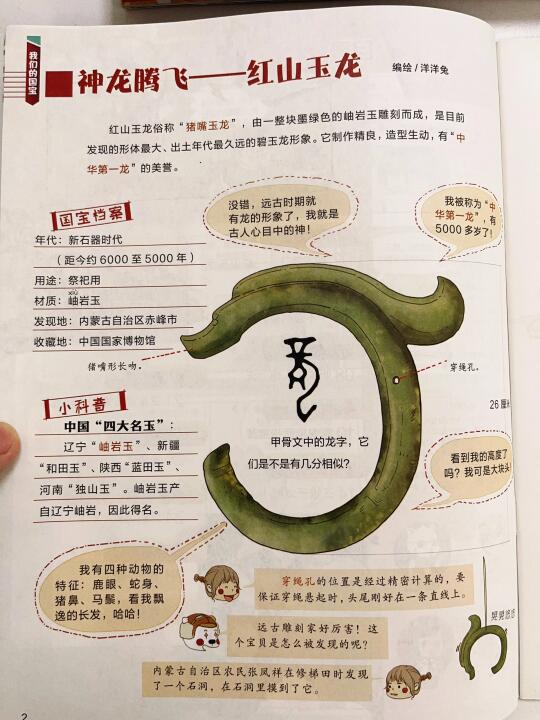 我们的国宝
神龙腾飞——红山玉龙
编绘/洋洋兔
红山玉龙俗称“猪嘴玉龙”，由一整块墨绿色的岫岩玉雕刻而成，是目前
发现的形体最大、出土年代最久远的碧玉龙形象。它制作精良，造型生动，有“中
华第一龙”的美誉。
国宝档案
年代：新石器时代
（距今约6000至5000年）
用途：祭祀用
xiù
材质：岫岩玉
发现地：内蒙古自治区赤峰市
收藏地：中国国家博物馆
没错，远古时期就
有龙的形象了，我就是
古人心目中的神！
我被称为“中
华第一龙”，有
5000多岁了！
猪嘴形长吻。
穿绳孔。
26厘米
甲骨文中的龙字，它
们是不是有几分相似？
小科普
中国“四大名玉”：
辽宁“岫岩玉”、新疆
“和田玉”、陕西“蓝田玉”、
河南“独山玉”。岫岩玉产
自辽宁岫岩，因此得名。
看到我的高度了
吗？我可是大块头！
我有四种动物的
特征：鹿眼、蛇身、
猪鼻、马鬃，看我飘
逸的长发，哈哈！
穿绳孔的位置是经过精密计算的，要
保证穿绳悬起时，头尾刚好在一条直线上。
远古雕刻家好厉害！这
个宝贝是怎么被发现的呢？
晃晃悠悠
内蒙古自治区农民张凤祥在修梯田时发现
了一个石洞，在石洞里摸到了它。
2